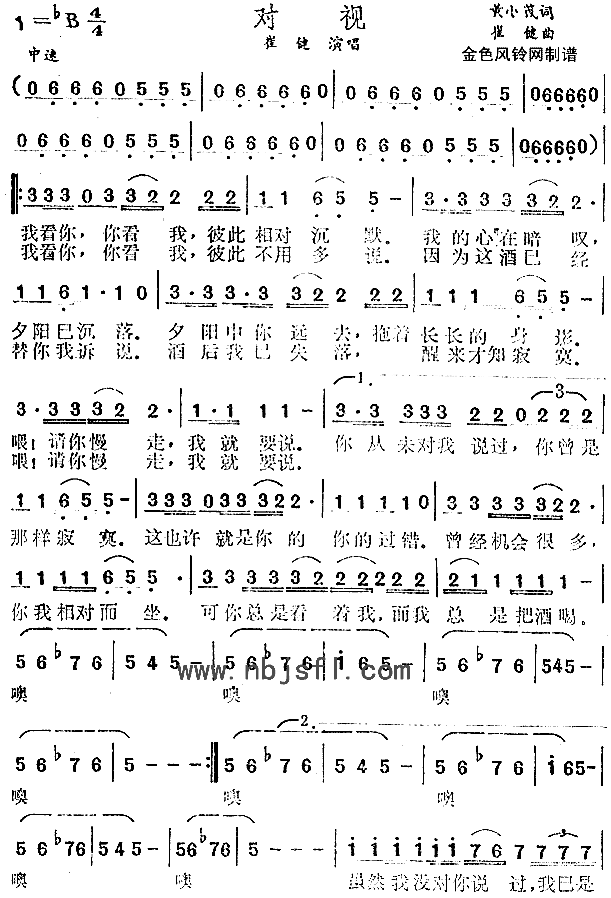 1=♭B 4/4 对 视 黄小茂词
崔 健 演唱 崔 健 曲
中速 金色风铃网制谱
(0666605 55|0666 60|0 66660555|066660|
066660555|066660|066660555|066660)
‖:3330332 2 22|11 65 5-|3·33332 2·|
我看你,你看 我,彼此相对 沉 默。 我的心在暗 叹,
我看你,你看 我,彼此不用 多 说。 因为这酒已 经
1161·10|3·33·3 22 22|111 65 5-|
夕阳已沉 落。夕阳中你远 去,拖着长长的 身 影。
替你我诉 说。酒后我已失 落, 醒来才知 寂 寞。
1.
3·3332 2·|1·1 11-|3·3 333 220222|
喂!请你慢 走,我 就 要说。 你 从 未对我 说过,你曾是
喂!请你慢 走,我 就 要说。
1165 5-|333 033332 2·|1 1110|3·33332 2·|
那样寂 寞。这也许 就是你的 你的过错。曾经机会很 多,
111165 5·|33333222222|21 1111-|
你我相对而 坐。 可你总是看 着我,而我 总 是把酒喝。
56♭76|545-|56♭76|i65-|56♭76|545-|
www.nbjsfl.com
噢 噢 噢
2.
56♭76|5---:‖56♭76|545-|56♭76|i65-|
噢 噢 噢
56♭76|545-|56♭76|5---|iiiiii76 7777|
噢 噢 虽然我没对你说 过,我已是